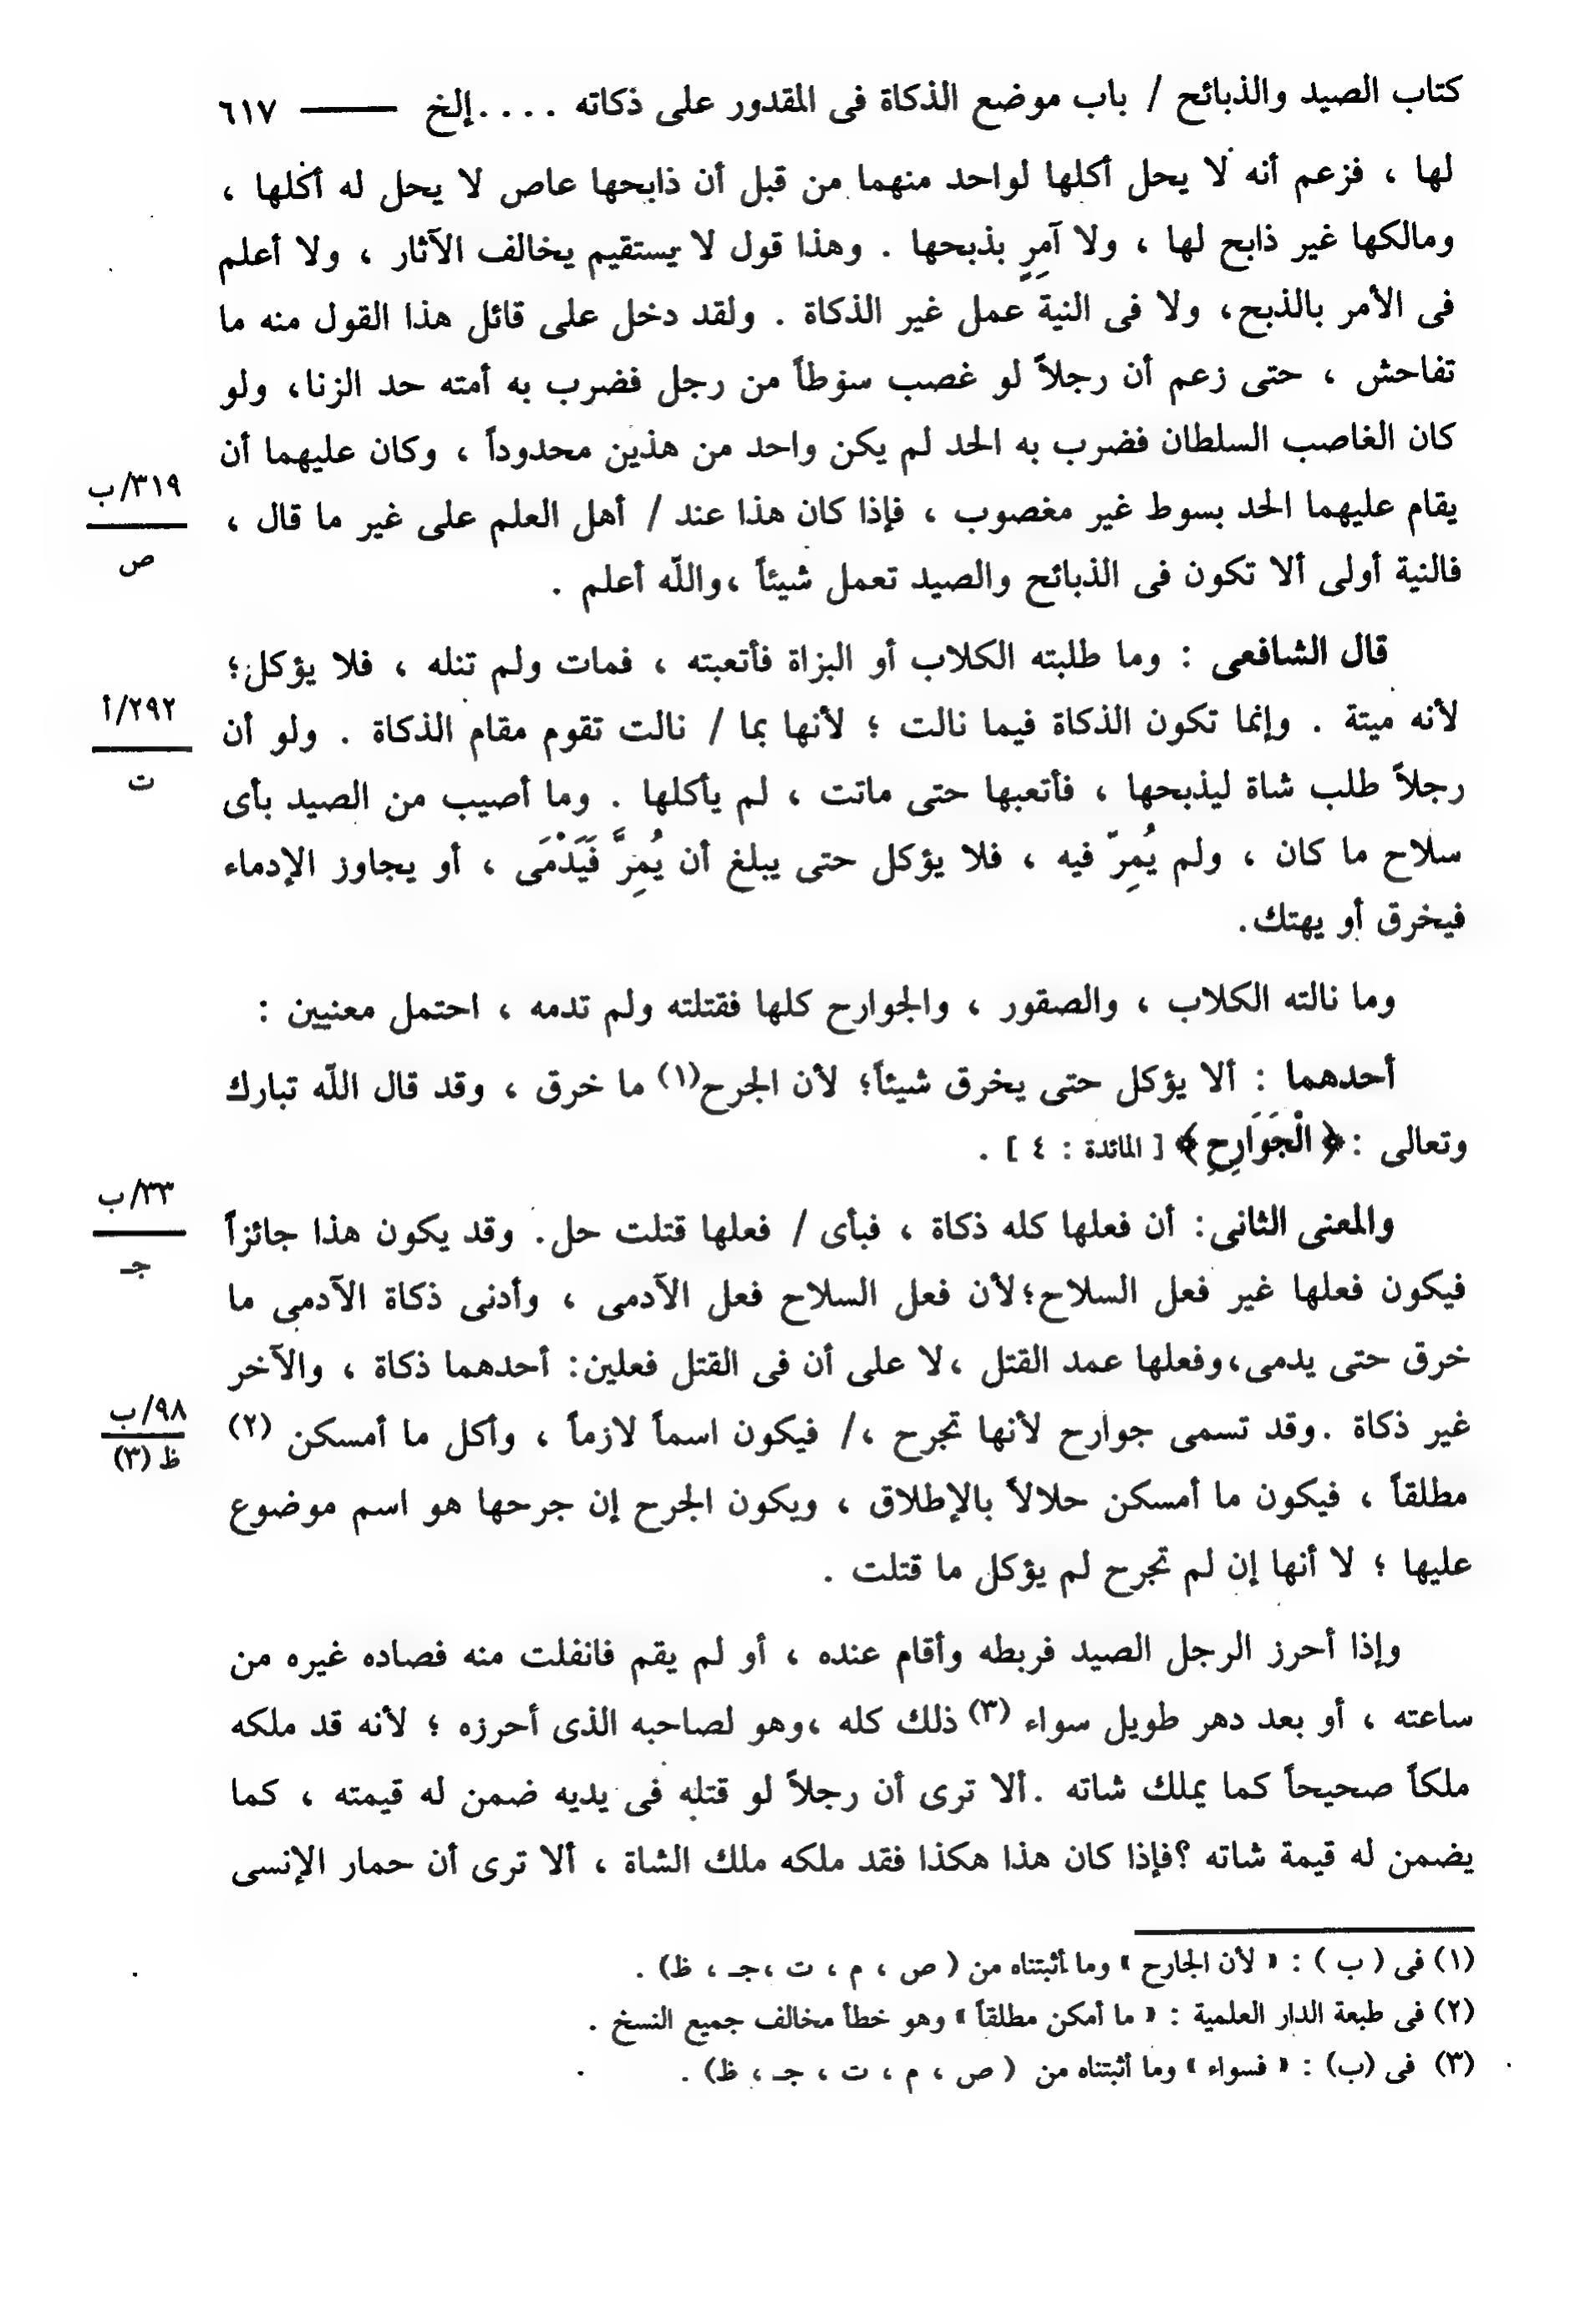 كتاب الصيد والذبائح / باب موضع الذكاة فى المقدور على ذكاته . . . . إلخ ——— ٦١٧
لها ، فزعم أنه لا يحل أكلها لواحد منهما من قبل أن ذابحها عاص لا يحل له أكلها ،
ومالكها غير ذابح لها ، ولا آمِرٍ بذبحها . وهذا قول لا يستقيم يخالف الآثار ، ولا أعلم
فى الأمر بالذبح، ولا فى النية عمل غير الذكاة . ولقد دخل على قائل هذا القول منه ما
تفاحش ، حتى زعم أن رجلاً لو غصب سوطاً من رجل فضرب به أمته حد الزنا، ولو
كان الغاصب السلطان فضرب به الحد لم يكن واحد من هذين محدوداً ، وكان عليهما أن
يقام عليهما الحد بسوط غير مغصوب ، فإذا كان هذا عند / أهل العلم على غير ما قال ،
٣١٩/ب
ص
فالنية أولى ألا تكون فى الذبائح والصيد تعمل شيئاً ،والله أعلم .
قال الشافعى : وما طلبته الكلاب أو البزاة فأتعبته ، فمات ولم تنله ، فلا يؤكل؛
لأنه ميتة . وإنما تكون الذكاة فيما نالت ؛ لأنها بما / نالت تقوم مقام الذكاة . ولو أن
٢٩٢/أ
ت
رجلاً طلب شاة ليذبحها ، فأتعبها حتى ماتت ، لم يأكلها . وما أصيب من الصيد بأى
سلاح ما كان ، ولم يُمِرّ فيه ، فلا يؤكل حتى يبلغ أن يُمِرَّ فَيَدْمَى ، أو يجاوز الإدماء
فيخرق أو يهتك.
وما نالته الكلاب ، والصقور ، والجوارح كلها فقتلته ولم تدمه ، احتمل معنيين :
أحدهما : ألا يؤكل حتى يخرق شيئاً؛ لأن الجرح(١) ما خرق ، وقد قال الله تبارك
وتعالى :﴿ الْجَوَارِحِ ﴾ [ المائدة : ٤ ] .
والمعنى الثانى: أن فعلها كله ذكاة ، فبأى / فعلها قتلت حل. وقد يكون هذا جائزاً
٣٣/ب
جـ
فيكون فعلها غير فعل السلاح؛لأن فعل السلاح فعل الآدمى ، وأدنى ذكاة الآدمى ما
خرق حتى يدمى،وفعلها عمد القتل ،لا على أن فى القتل فعلين: أحدهما ذكاة ، والآخر
غير ذكاة .وقد تسمى جوارح لأنها تجرح ،/ فيكون اسماً لازماً ، وأكل ما أمسكن (٢)
٩٨/ب
ظ (٣)
مطلقاً ، فيكون ما أمسكن حلالاً بالإطلاق ، ويكون الجرح إن جرحها هو اسم موضوع
عليها ؛ لا أنها إن لم تجرح لم يؤكل ما قتلت .
وإذا أحرز الرجل الصيد فربطه وأقام عنده ، أو لم يقم فانفلت منه فصاده غيره من
ساعته ، أو بعد دهر طويل سواء (٣) ذلك كله ،وهو لصاحبه الذى أحرزه ؛ لأنه قد ملكه
ملكاً صحيحاً كما يملك شاته .ألا ترى أن رجلاً لو قتله فى يديه ضمن له قيمته ، كما
يضمن له قيمة شاته ؟فإذا كان هذا هكذا فقد ملكه ملك الشاة ، ألا ترى أن حمار الإنسى
(١) فى ( ب ) : « لأن الجارح » وما أثبتناه من ( ص ، م ، ت ،جـ ، ظ) .
(٢) فى طبعة الدار العلمية : « ما أمكن مطلقاً » وهو خطأ مخالف جميع النسخ .
(٣) فى (ب) : « فسواء » وما أثبتناه من ( ص ، م ، ت ، جـ ، ظ) .